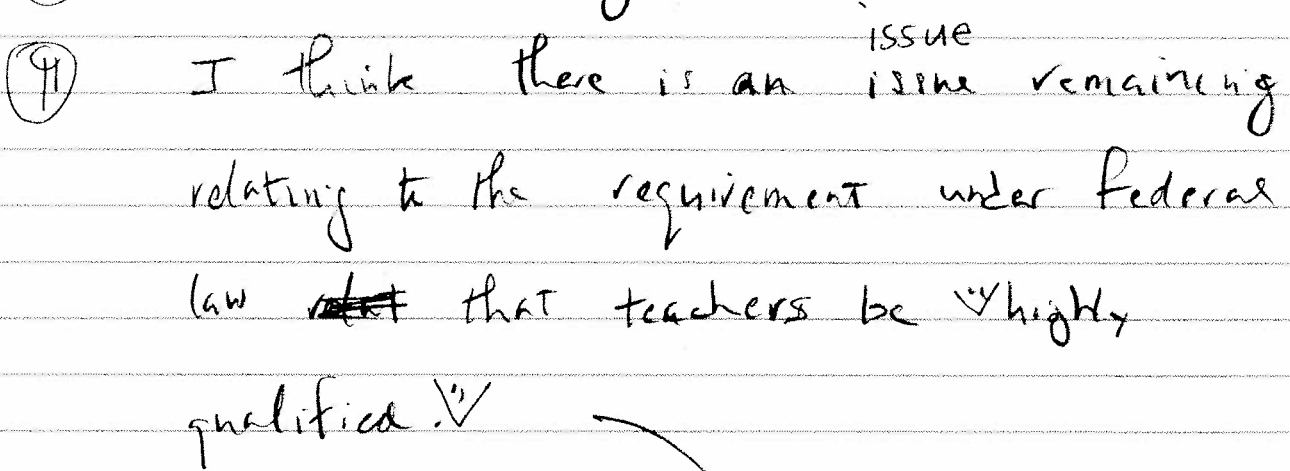 ¶ issue
I think there is an issue remaining
relating to the requirement under federal
law that teachers be "highly
qualified."